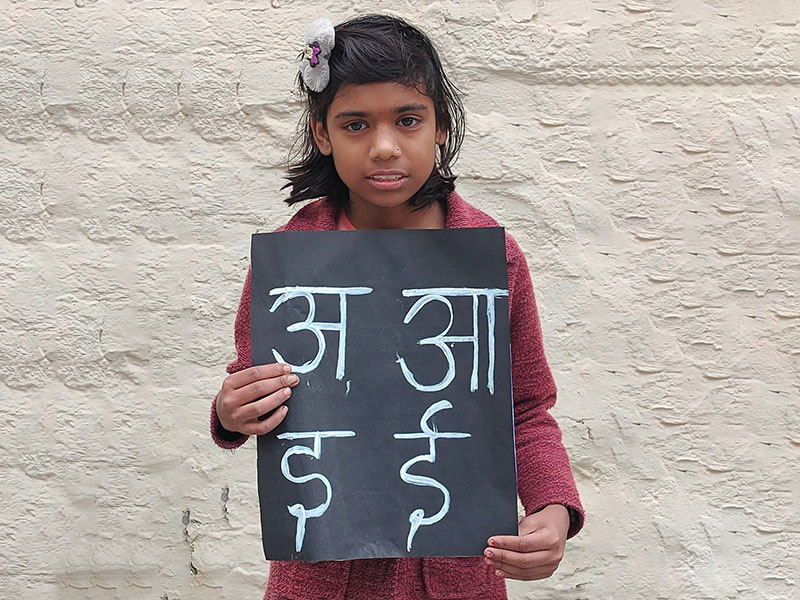 अ आ
इ ई